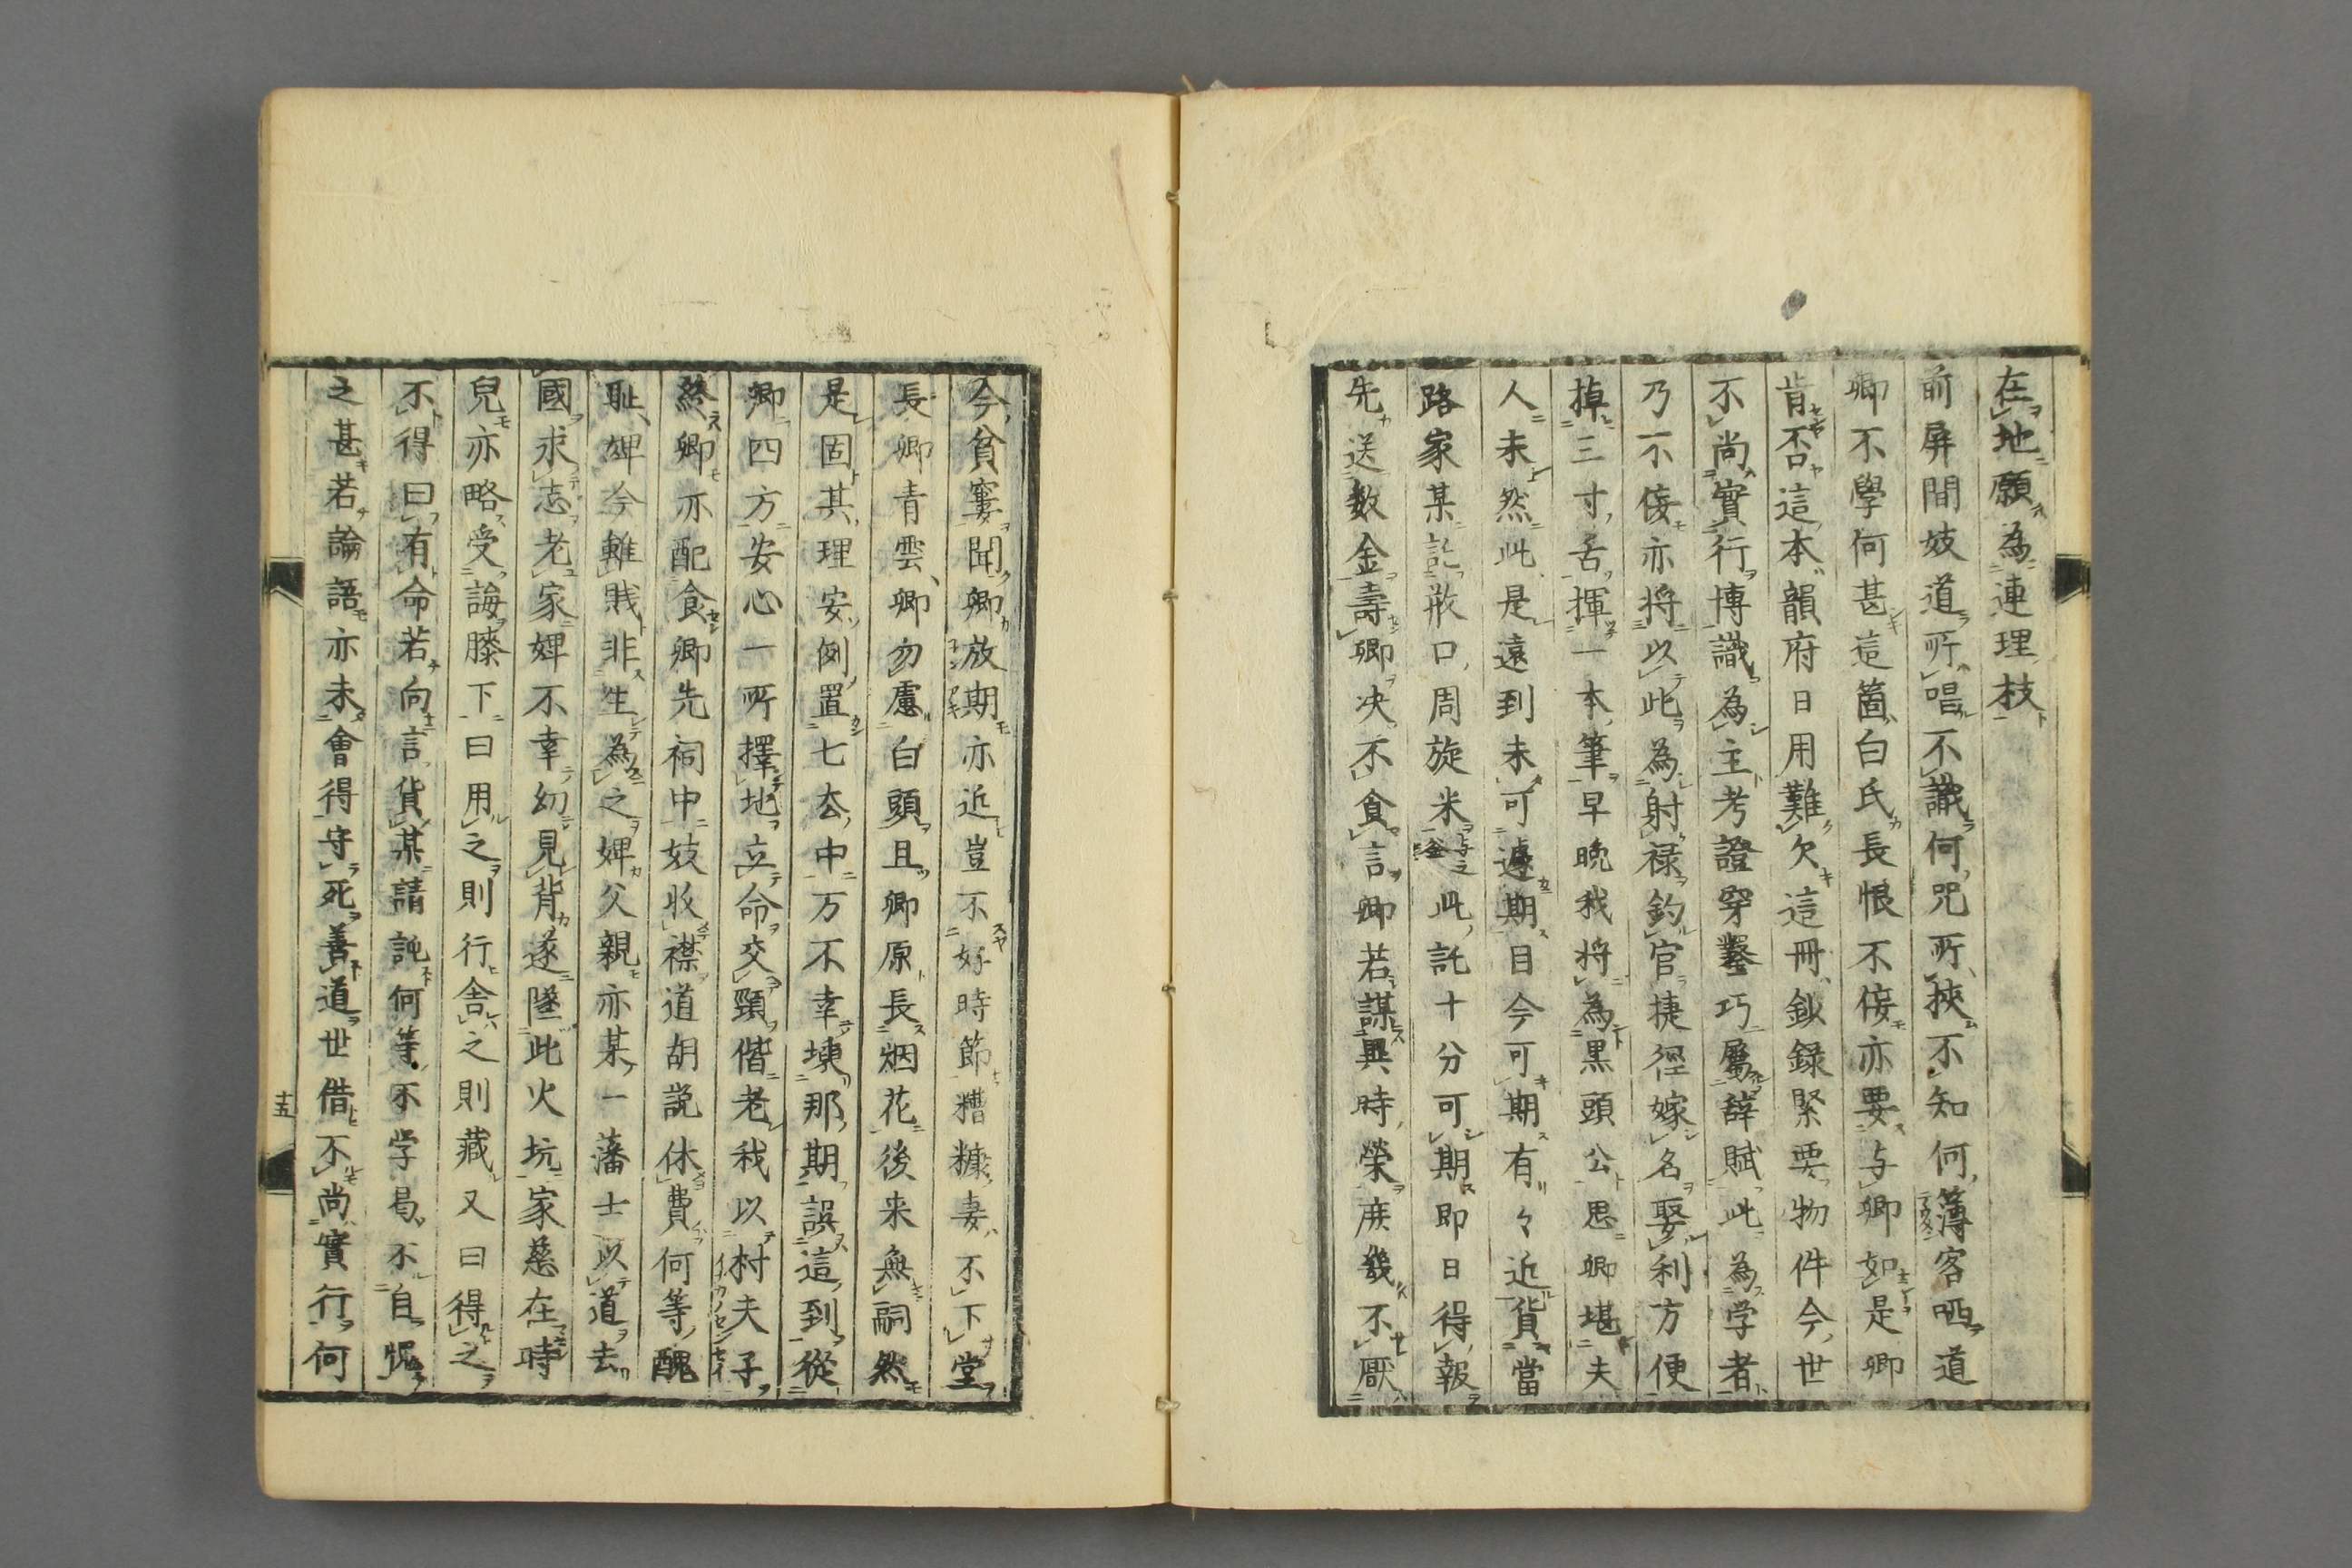 在地願為連理枝
前屏間妓道所唱不識何咒所挾不知何簿客哂道
卿不學何甚這箇白氏長恨不侫亦要与卿如是卿
肯否這本韻府日用難欠這冊鈔録緊要物件今世
不尚實行博識為主考證穿鑿巧属辞賦此為学者
乃不侫亦将以此為射禄釣官捷径嫁名娶利方便
掉三寸舌揮一本筆早晩我将為黒頭公思卿堪夫
人未然此是遠到未可遽期目今可期有々近貨當
路家某訖散口周旋米此託十分可期即日得報
先送数金壽卿决不食言卿若謀興時榮庶幾不厭
今貧窶聞卿放期亦近豈不好時節糟糠妻不下堂
長卿青雲卿勿慮白頭且卿原長烟花後来無嗣然
是固其理安例置七去中万不幸壊那期誤這到從
卿四方安心一所擇地立命交頸偕老我以村夫子
終卿亦配食卿先祠中妓收襟道胡說休費何等醜
恥婢今雖賎非生為之婢父親亦某一藩士以道去
國求志老家婢不幸幼見背遂墜此火坑家慈在時
兒亦略受誨膝下曰用之則行舎之則藏又曰得之
不得曰有命若向言貨某請託何等不学曷不自愧
之甚若論語亦未會得守死善道世借不尚實行何
十五